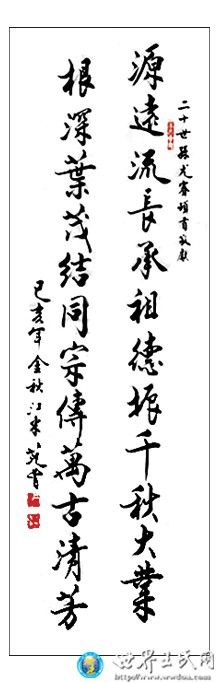 二十世孫光睿頓首敬獻
源遠流長承祖德振千秋大業
根深葉茂結同宗傳萬古清芳
己亥年金秋江東
世界王氏网
http://www.wwdoa.com